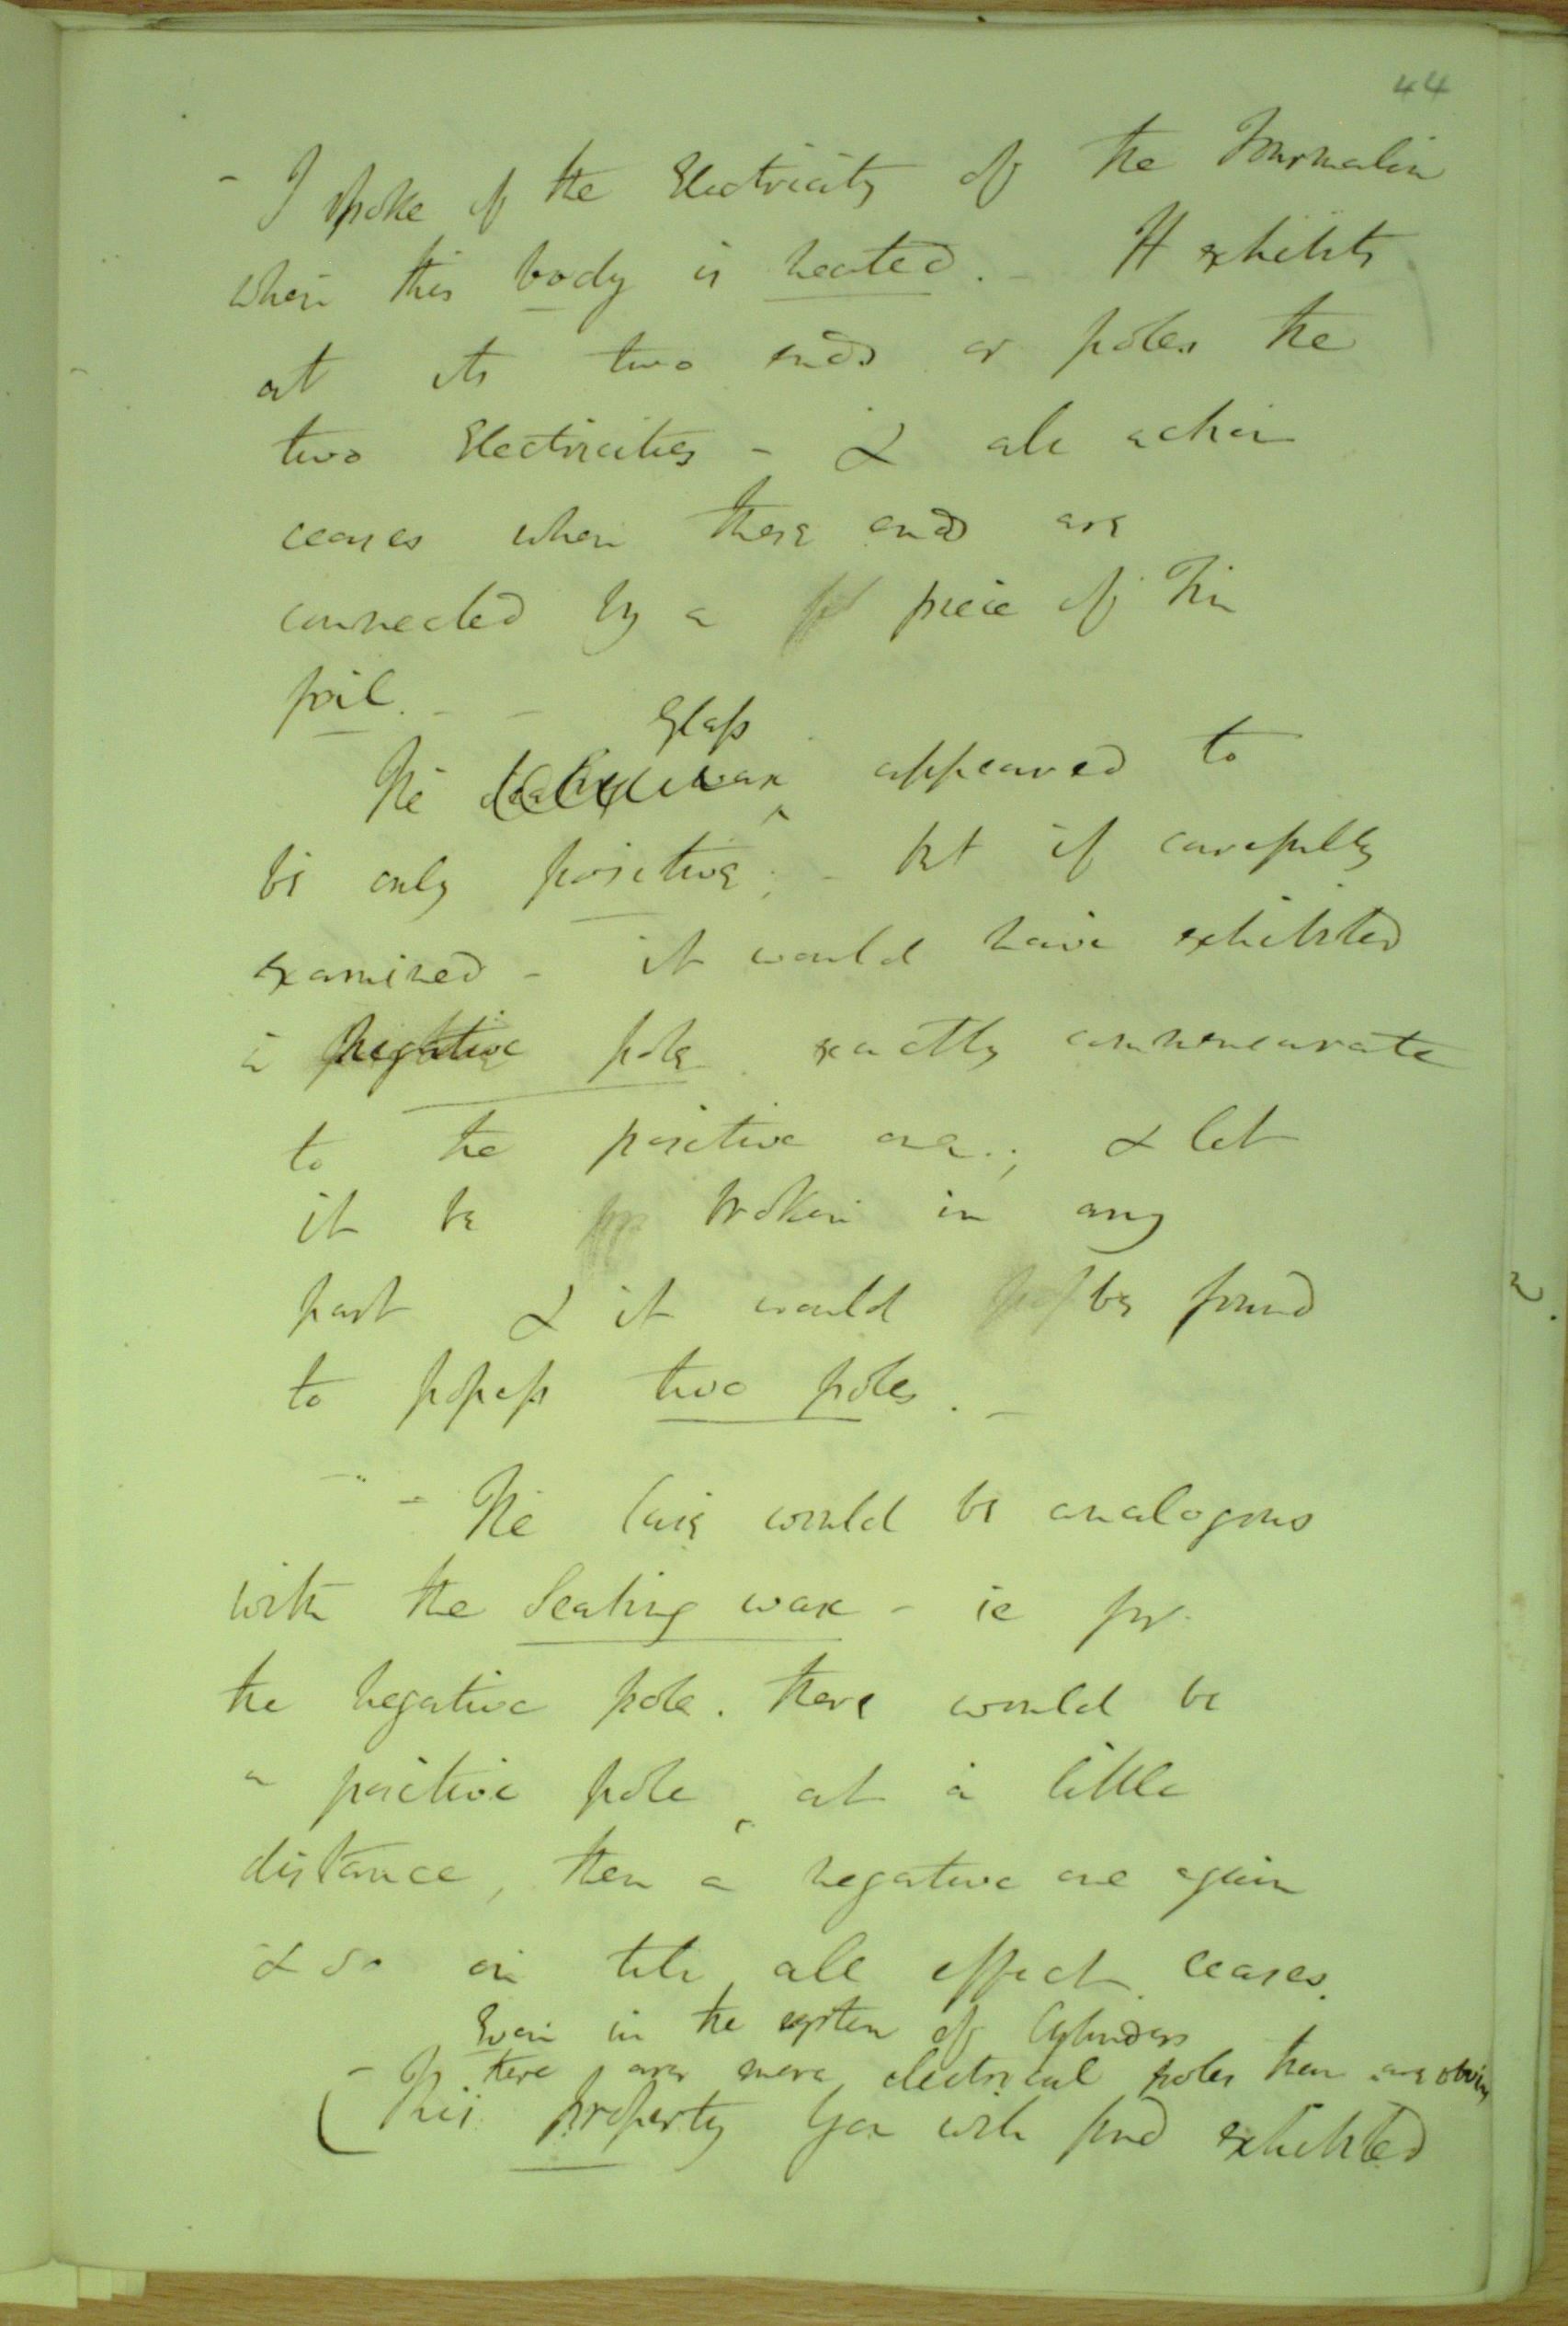 44
- I spoke of the Electricity of the Tourmalin
when this body is heated. - It exhibits
at its two ends or poles the
two Electricities - & all action
ceases when these ends are
connected by a piece of Tin
foil. - -
Glass
The sealing wax appeared to
be only positive; - but if carefully
examined - it would have exhibited
a negative pole exactly commensurate
to the positive one.; & let
it be broken in any
part & it would be found
to possess two poles. -
- The case would be analogous
with the Sealing wax - ie for
the negative pole. there would be
a positive pole at a little
distance, then a negative one again
& so on till all effect ceases.
Even in the system of Cylinders
there are more electrical poles than are obvious
- (This property You will find exhibited